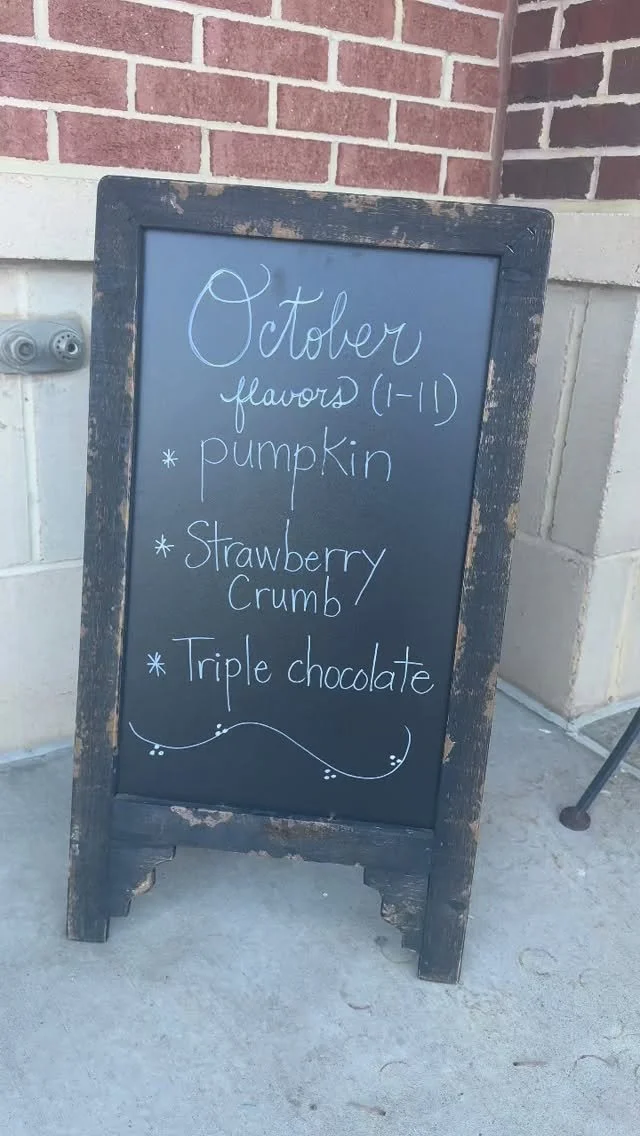 October
flavors (1-11)
* pumpkin
* Strawberry
Crumb
* Triple chocolate